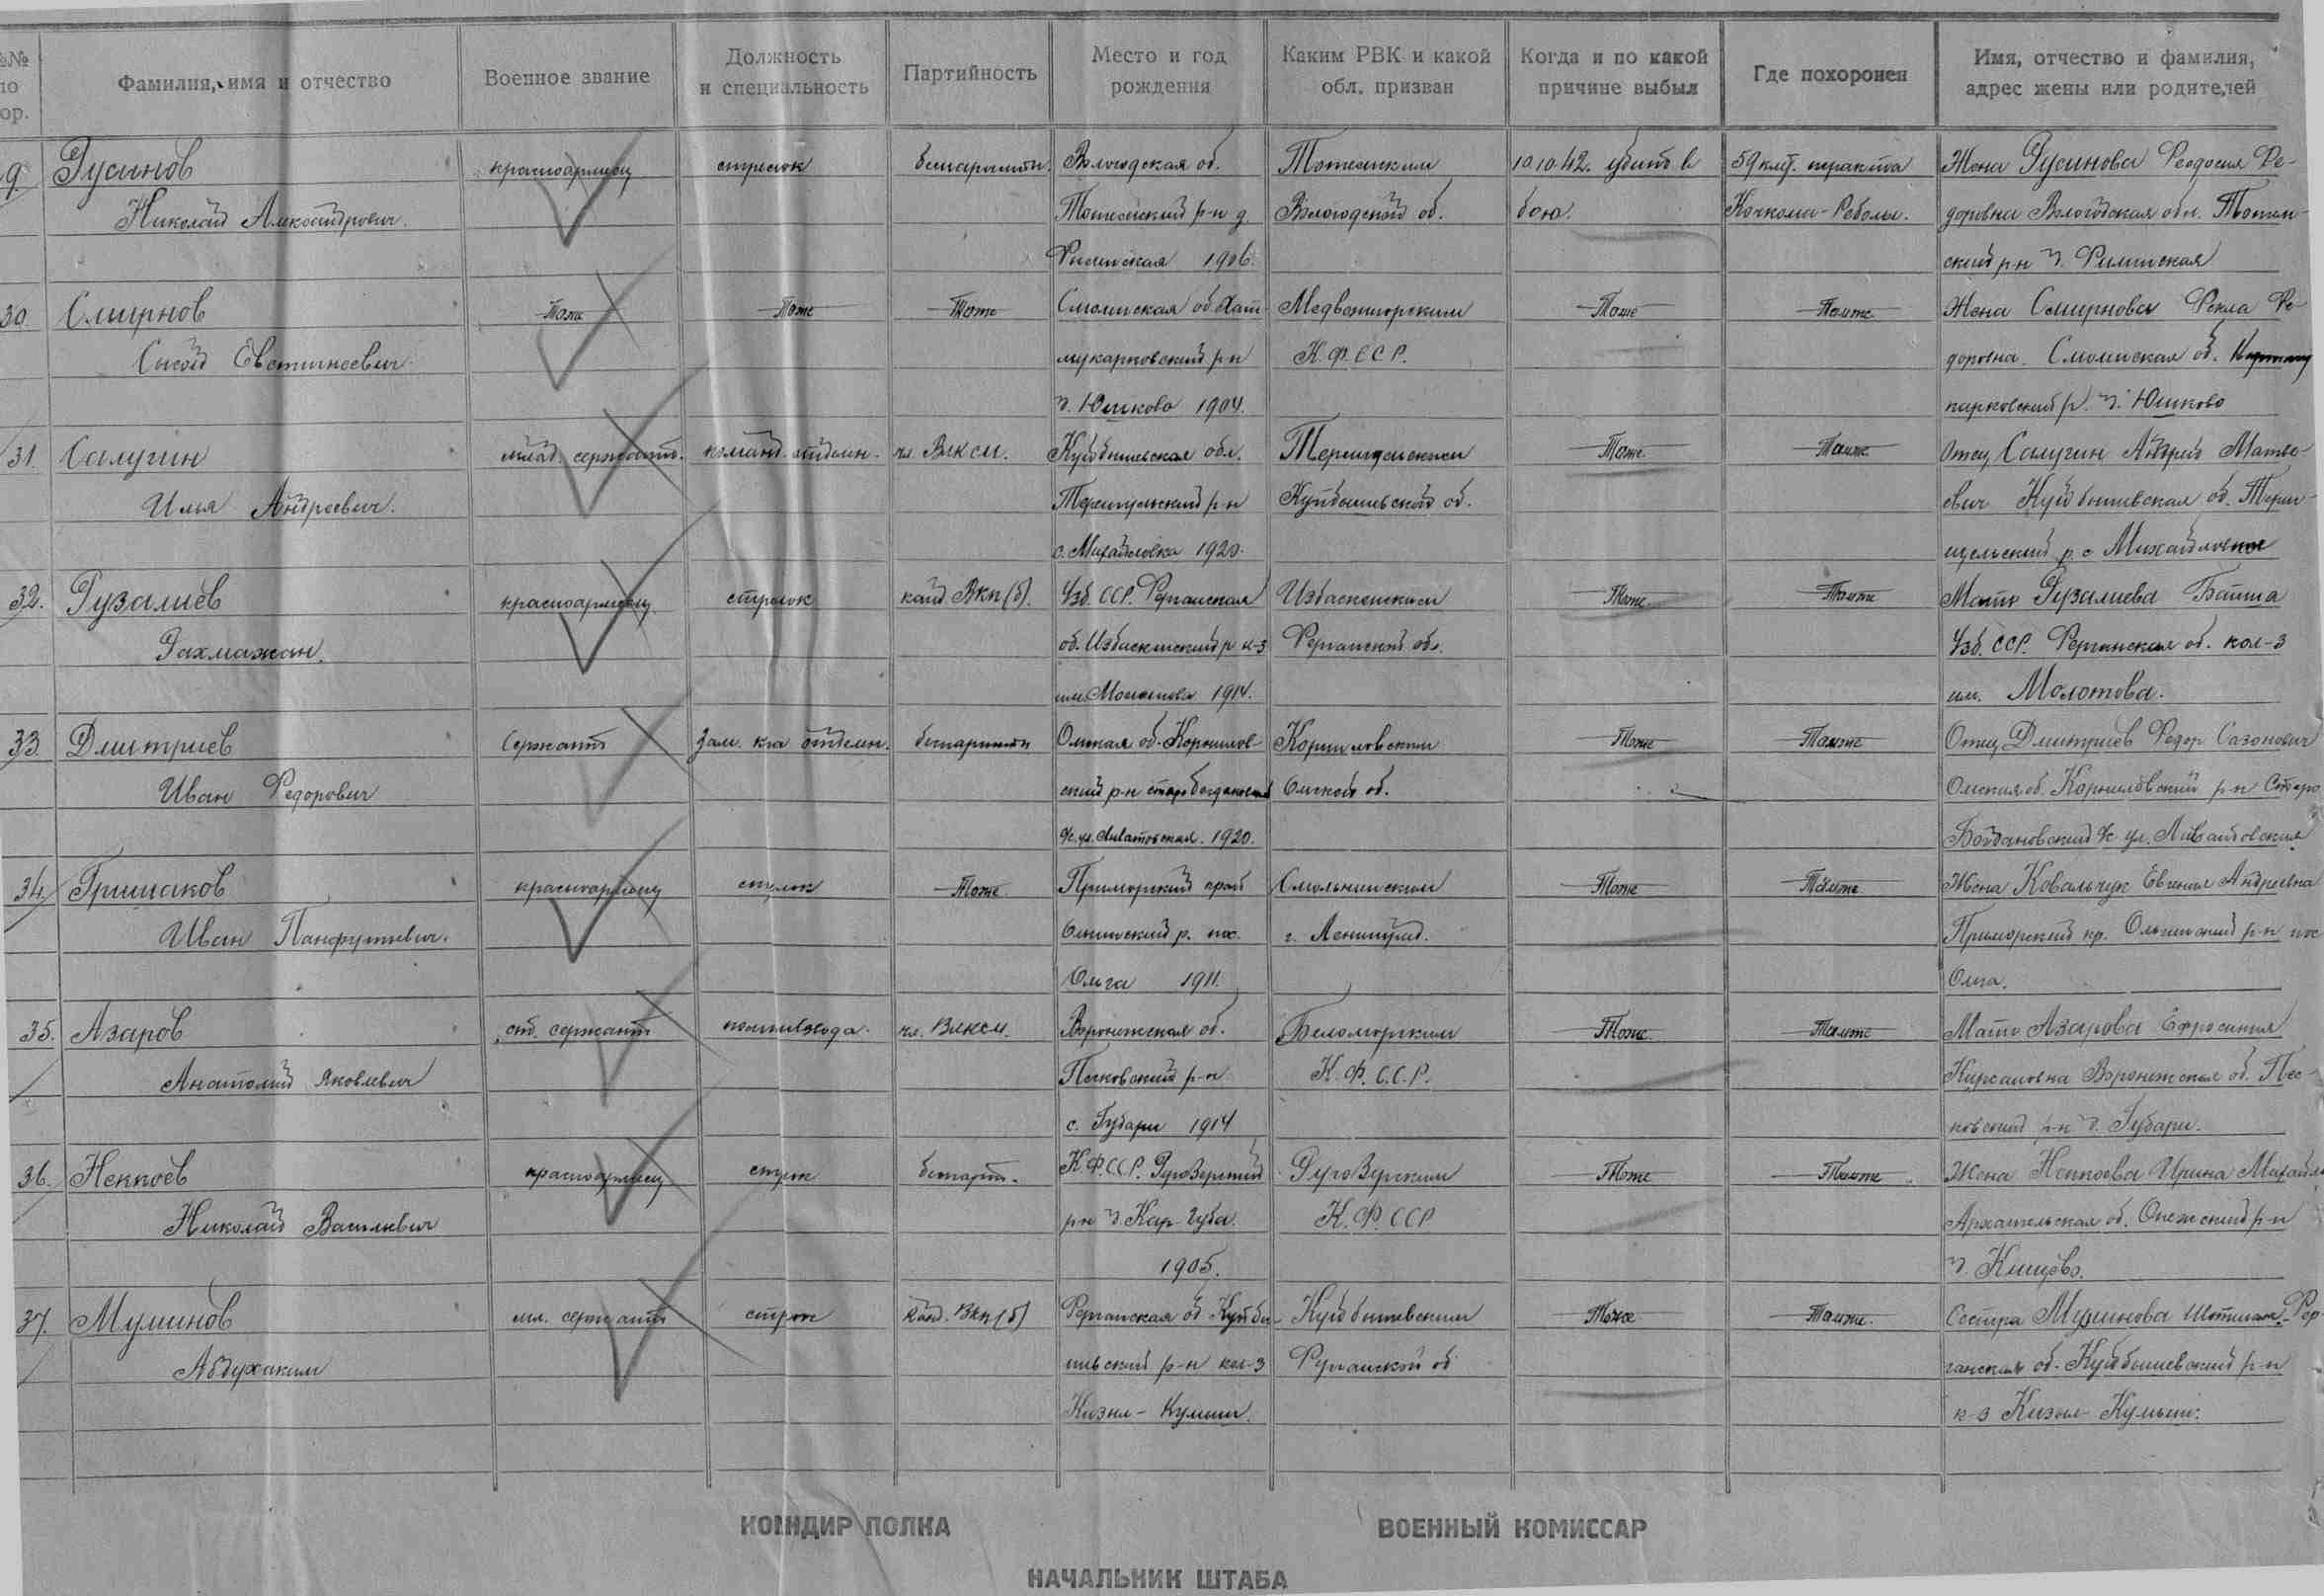 №№ по пор.
Фамилия, имя и отчество
Военное звание
Должность и специальность
Партийность
Место и год рождения
Каким РВК и какой обл. призван
Когда и по какой причине выбыл
Где похоронен
Имя, отчество и фамилия, адрес жены или родителей
9. Русинов красноармеец стрелок Вологодская об. Тотемским 10.10.42. убит в 59 клм. тракта Жена Русинова Феодосия Фе-
Николай Александрович. Тотемский р-н д. Вологодской об. бою. Кочкома-Реболы. доровна Вологодская обл. Тотем-
1906. ский р-н д. Филинская
30 Смирнов Тоже Тоже Тоже Смоленская об. Медвежьгорским Тоже Тамже Жена Смирнова Фекла Фе-
Сысой Евстигнеевич р-н К.Ф.ССР. доровна. Смоленская об.
д. Юшково 1904. р. д. Юшково
31 Салугин млад. сержант. команд. отделен. чл. ВЛКСМ. Куйбышевская обл. Теренгульским Тоже Тамже Отец Салугин Андрей Матве-
Илья Андреевич. Теренгульский р-н Куйбышевской об. евич Куйбышевская об. Терен-
с. Михайловка 1920. гульский р. с Михайловка
32. Рузалиев красноармеец стрелок канд. ВКП(б). Узб. ССР. Ферганская Избаскентским Тоже Тамже Мать Рузалиева
Рахмажан. об. Избаскентский р к-з Ферганской обл. Узб. ССР. Ферганская об. кол-з
им. Молотова 1914. им. Молотова.
33. Дмитриев Сержант Зам. к-ра отделен. Омская об. Корнилов- Корниловским Тоже Тамже Отец Дмитриев Федор Сазонович
Иван Федорович ский р-н Омской об. Омская об. Корниловский р-н Старо
1920. Богдановский
34. Гришаков красноармеец стрелок Тоже Приморский край Смольнинским Тоже Тамже Жена Ковальчук Евгения Андреевна
Иван Панфутьевич. Ольгинский р. пос. г. Ленинград. Приморский кр. Ольгинский р-н пос
Ольга 1911. Ольга.
35. Азаров ст. сержант помкомвзвода. чл. ВЛКСМ. Воронежская об. Беломорским Тоже Тамже Мать Азарова Ефросиния
Анатолий Яковлевич Песковский р-н К.Ф.С.С.Р. Кирсановна Воронежская об. Пес-
с. Губари 1914 ковский р-н д. Губари.
36. Неккоев красноармеец стрелок беспарт. К.Ф.ССР. Ругозерский Ругозерским Тоже Тамже Жена Неккоева Ирина Михайл
Николай Васильевич р-н д. К.Ф.ССР Архангельская об. Онежский р-н
1905.
37. Муминов мл. сержант стрелок канд. ВКП(б) Ферганская об Куйбы- Куйбышевским Тоже Тамже. Сестра Муминова Фер-
Абдухаким шевский р-н кол-з Ферганской об. ганская об. Куйбышевский р-н
Кизил- к-з Кизил-
КОМАНДИР ПОЛКА
ВОЕННЫЙ КОМИССАР
НАЧАЛЬНИК ШТАБА